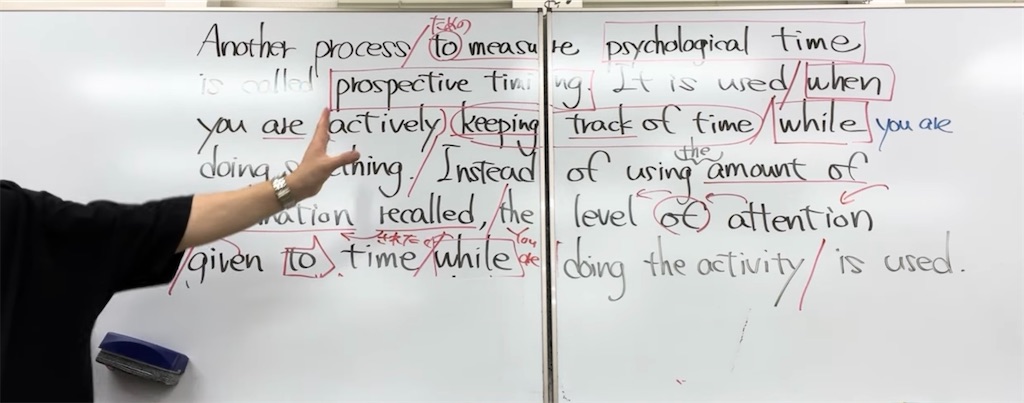 ための
Another process to measure psychological time
is called prospective timing. It is used when
you are actively keeping track of time while you are
doing something. Instead of using the amount of
recalled, the level of attention
given to time while You are doing the activity is used.